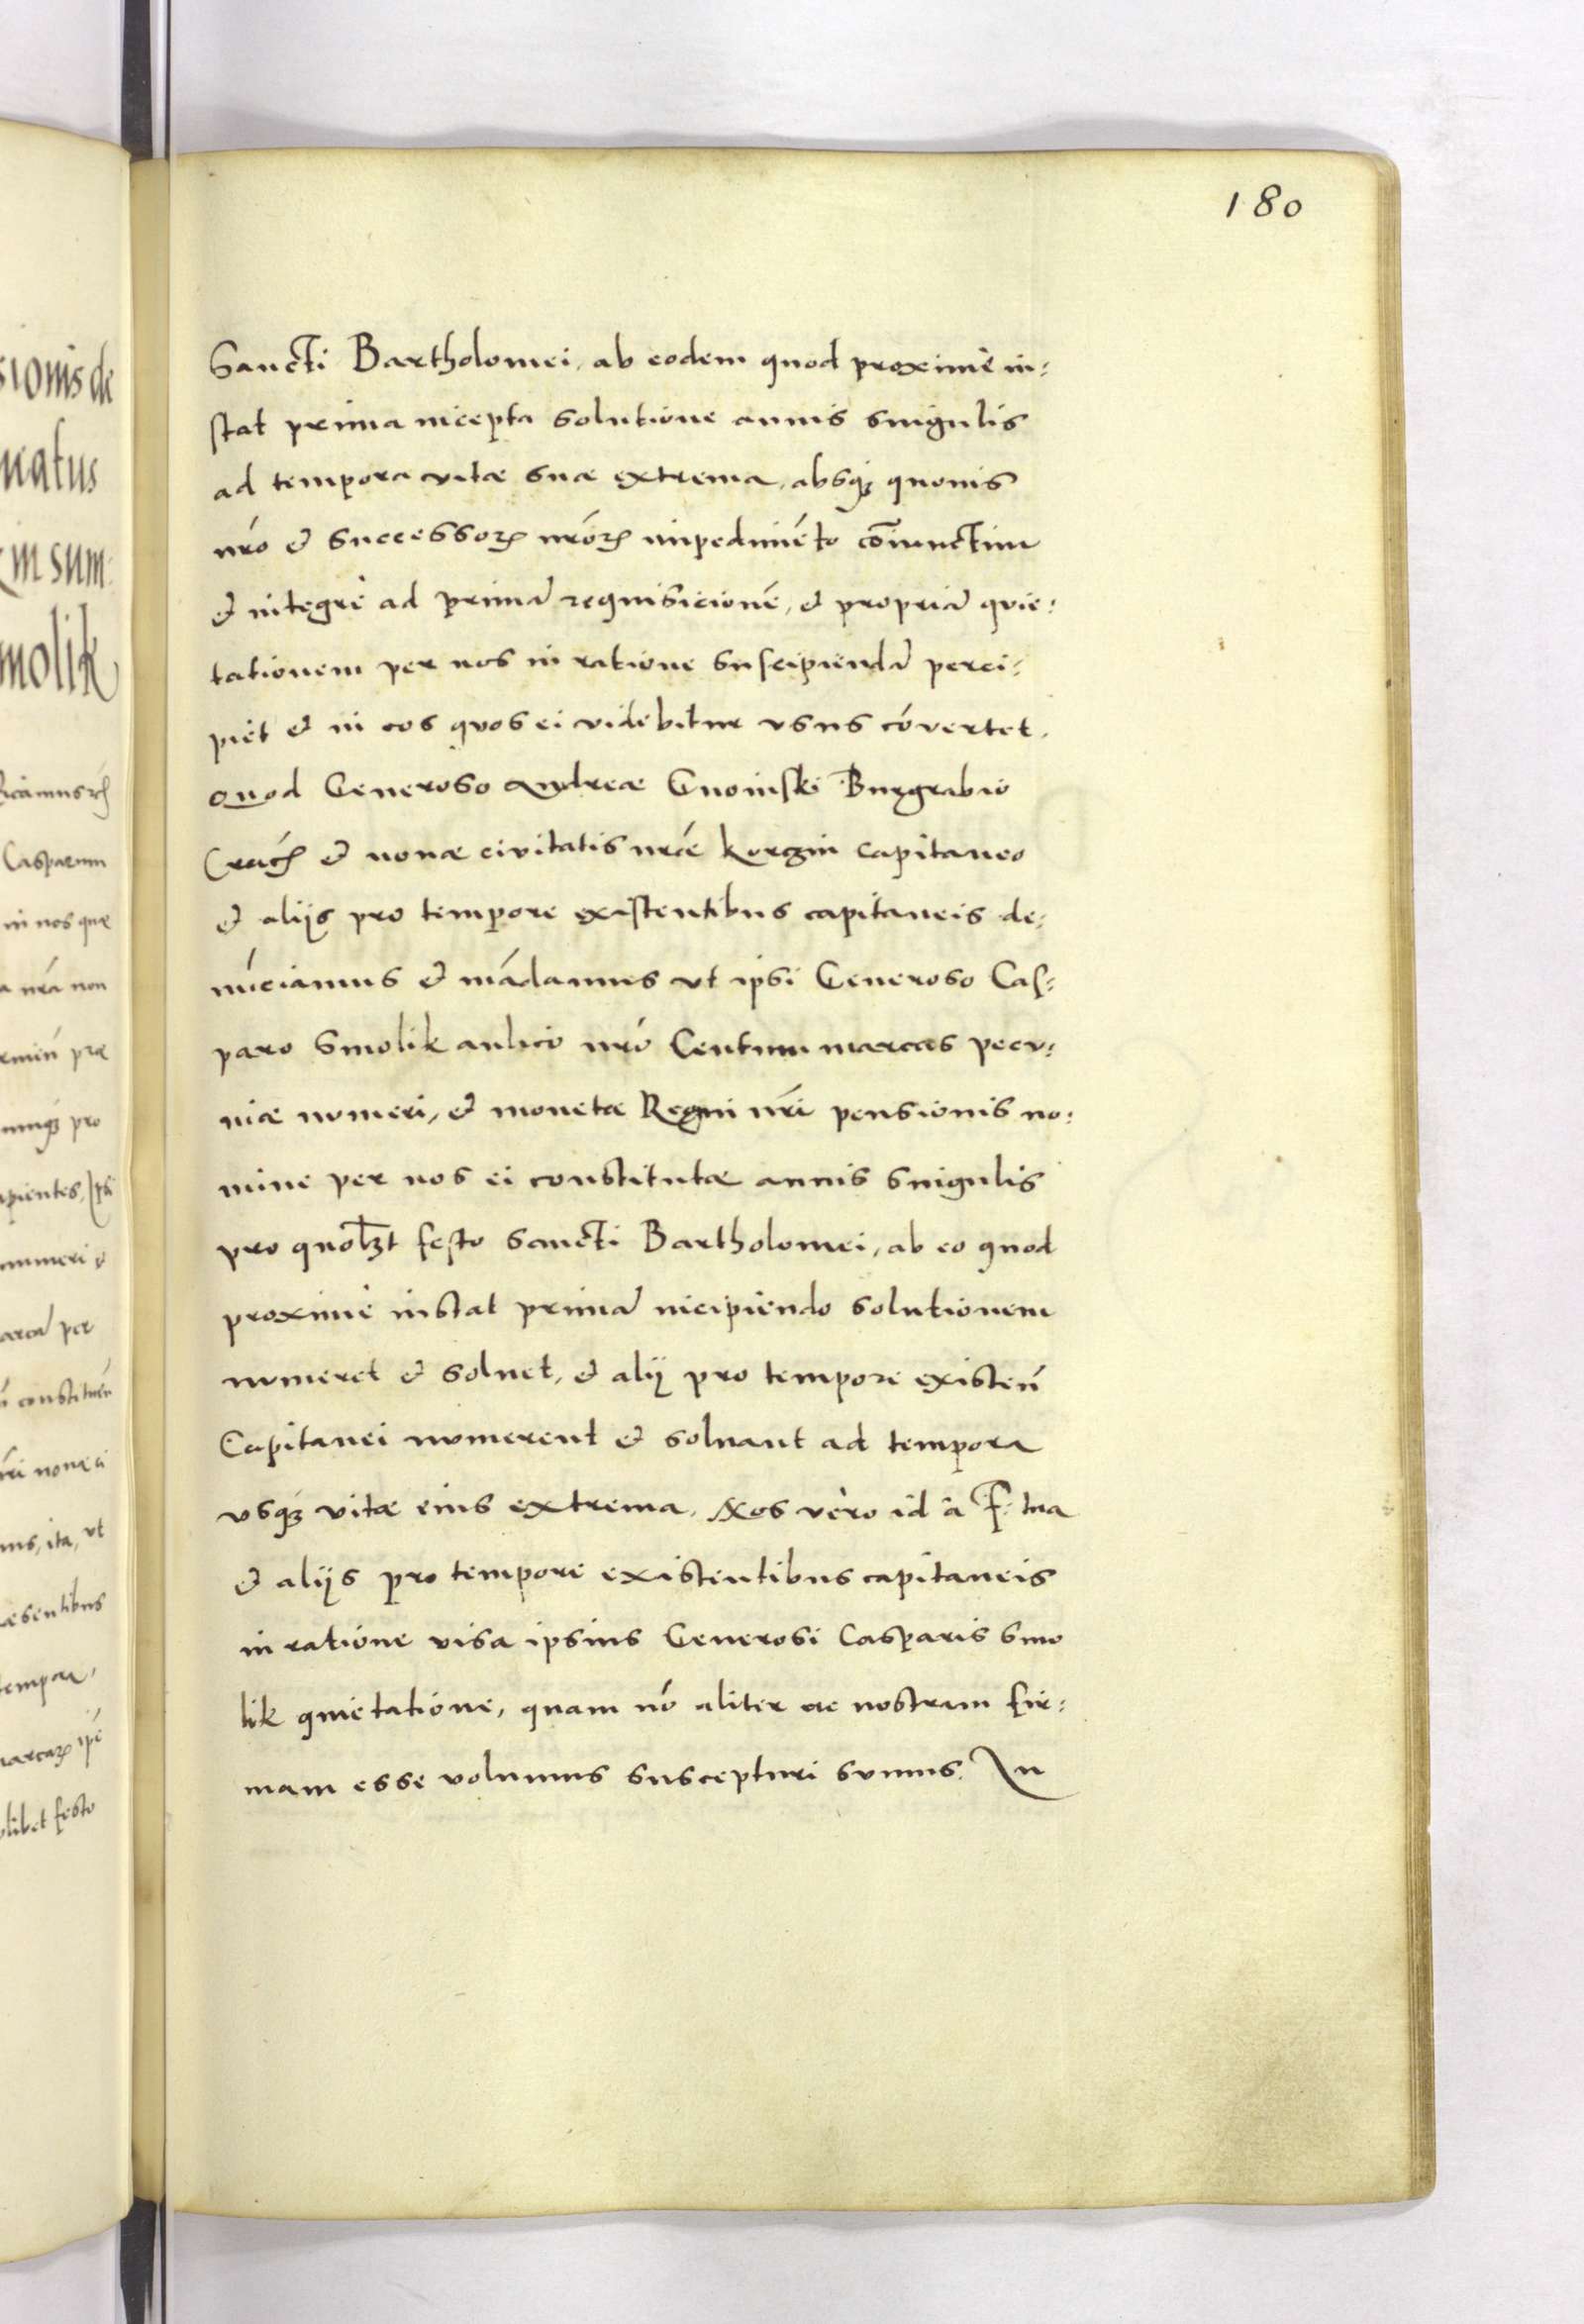 180
Sancti Bartholomei, ab eodem quod proximè in:
stat prima incepta solutione annis singulis
ad tempora vitæ suæ extrema, absq3 quouis
nr̄o et successorꝝ nr̄orꝝ impedimēto cōiunctim
et integrè ad primā requisicionē, et propriā quie:
tationem per nos in ratione suscipiendā perci:
piet et in eos quos ei videbitur vsus cōvertet.
Quod Generoso Andreæ Gnoinski Burgrabio
Cracń et nouæ civitatis nr̄æ Korczin capitaneo
et alijs pro tempore existentibus capitaneis de:
nūciamus et mādamus vt ipsi Generoso Cas:
paro Smolik aulico nr̄o Centum marcas pecu:
niæ numeri, et monetæ Regni nr̄i pensionis no:
mine per nos ei constitutæ annis singulis
pro quolꝫt festo Sancti Bartholomei, ab eo quod
proximè instat primā incipiendo solutionem
numeret et soluet, et alij pro tempore existeń
Capitanei numerent et soluant ad tempora
vsq3 vitæ eius extrema. Nos vero id à F. tua
et alijs pro tempore existentibus capitaneis
in ratione visa ipsius Generosi Casparis Smo
lik quietatione, quam nō aliter ac nostram fir:
mam esse volumus suscepturi sumus. In
sionis de
natus
in sum:
molik
Casparum
in nos quæ
a nr̄a non
pro
apientes, Ipsi
numeri et
per
constitueń
nouæ ci
ita, vt
æsentibus
tempora,
marcarꝝ ipē
olibet festo